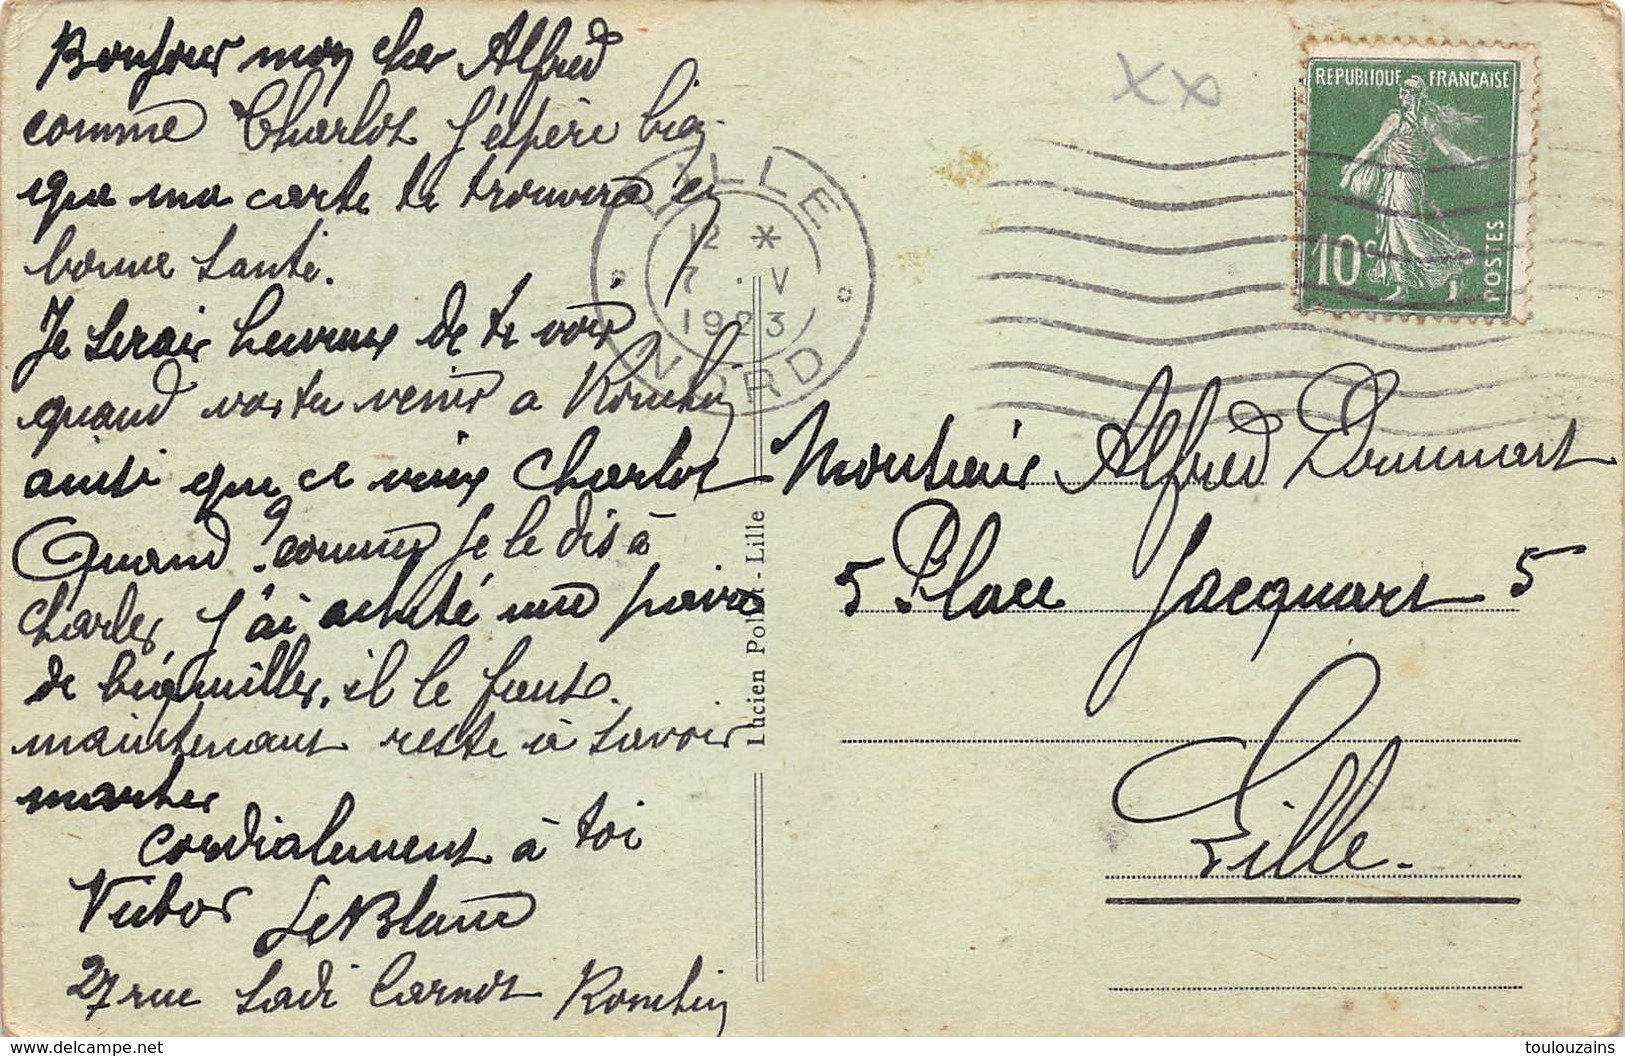 Bonjour mon cher Alfred
comme Charlot J'espère bien
que ma carte te trouvera en
bonne santé.
Je serais heureux de te voir
quand vas tu venir a Ronchin
ainsi que ce vieux Charlot
Quand? comme je le dis à
Charles, J'ai acheté une paire
de béquilles, il le faut.
maintenant reste à savoir
marcher
Cordialement à toi
Victor LeBlanc
27 rue Sadi Carnot Ronchin
Lucien Pollet - Lille
XX
LILLE
12 *
7 . V
1923
NORD
REPUBLIQUE FRANÇAISE
10c
POSTES
Monsieur Alfred
5 Place Jacquart 5
Lille.
delcampe.net
toulouzains